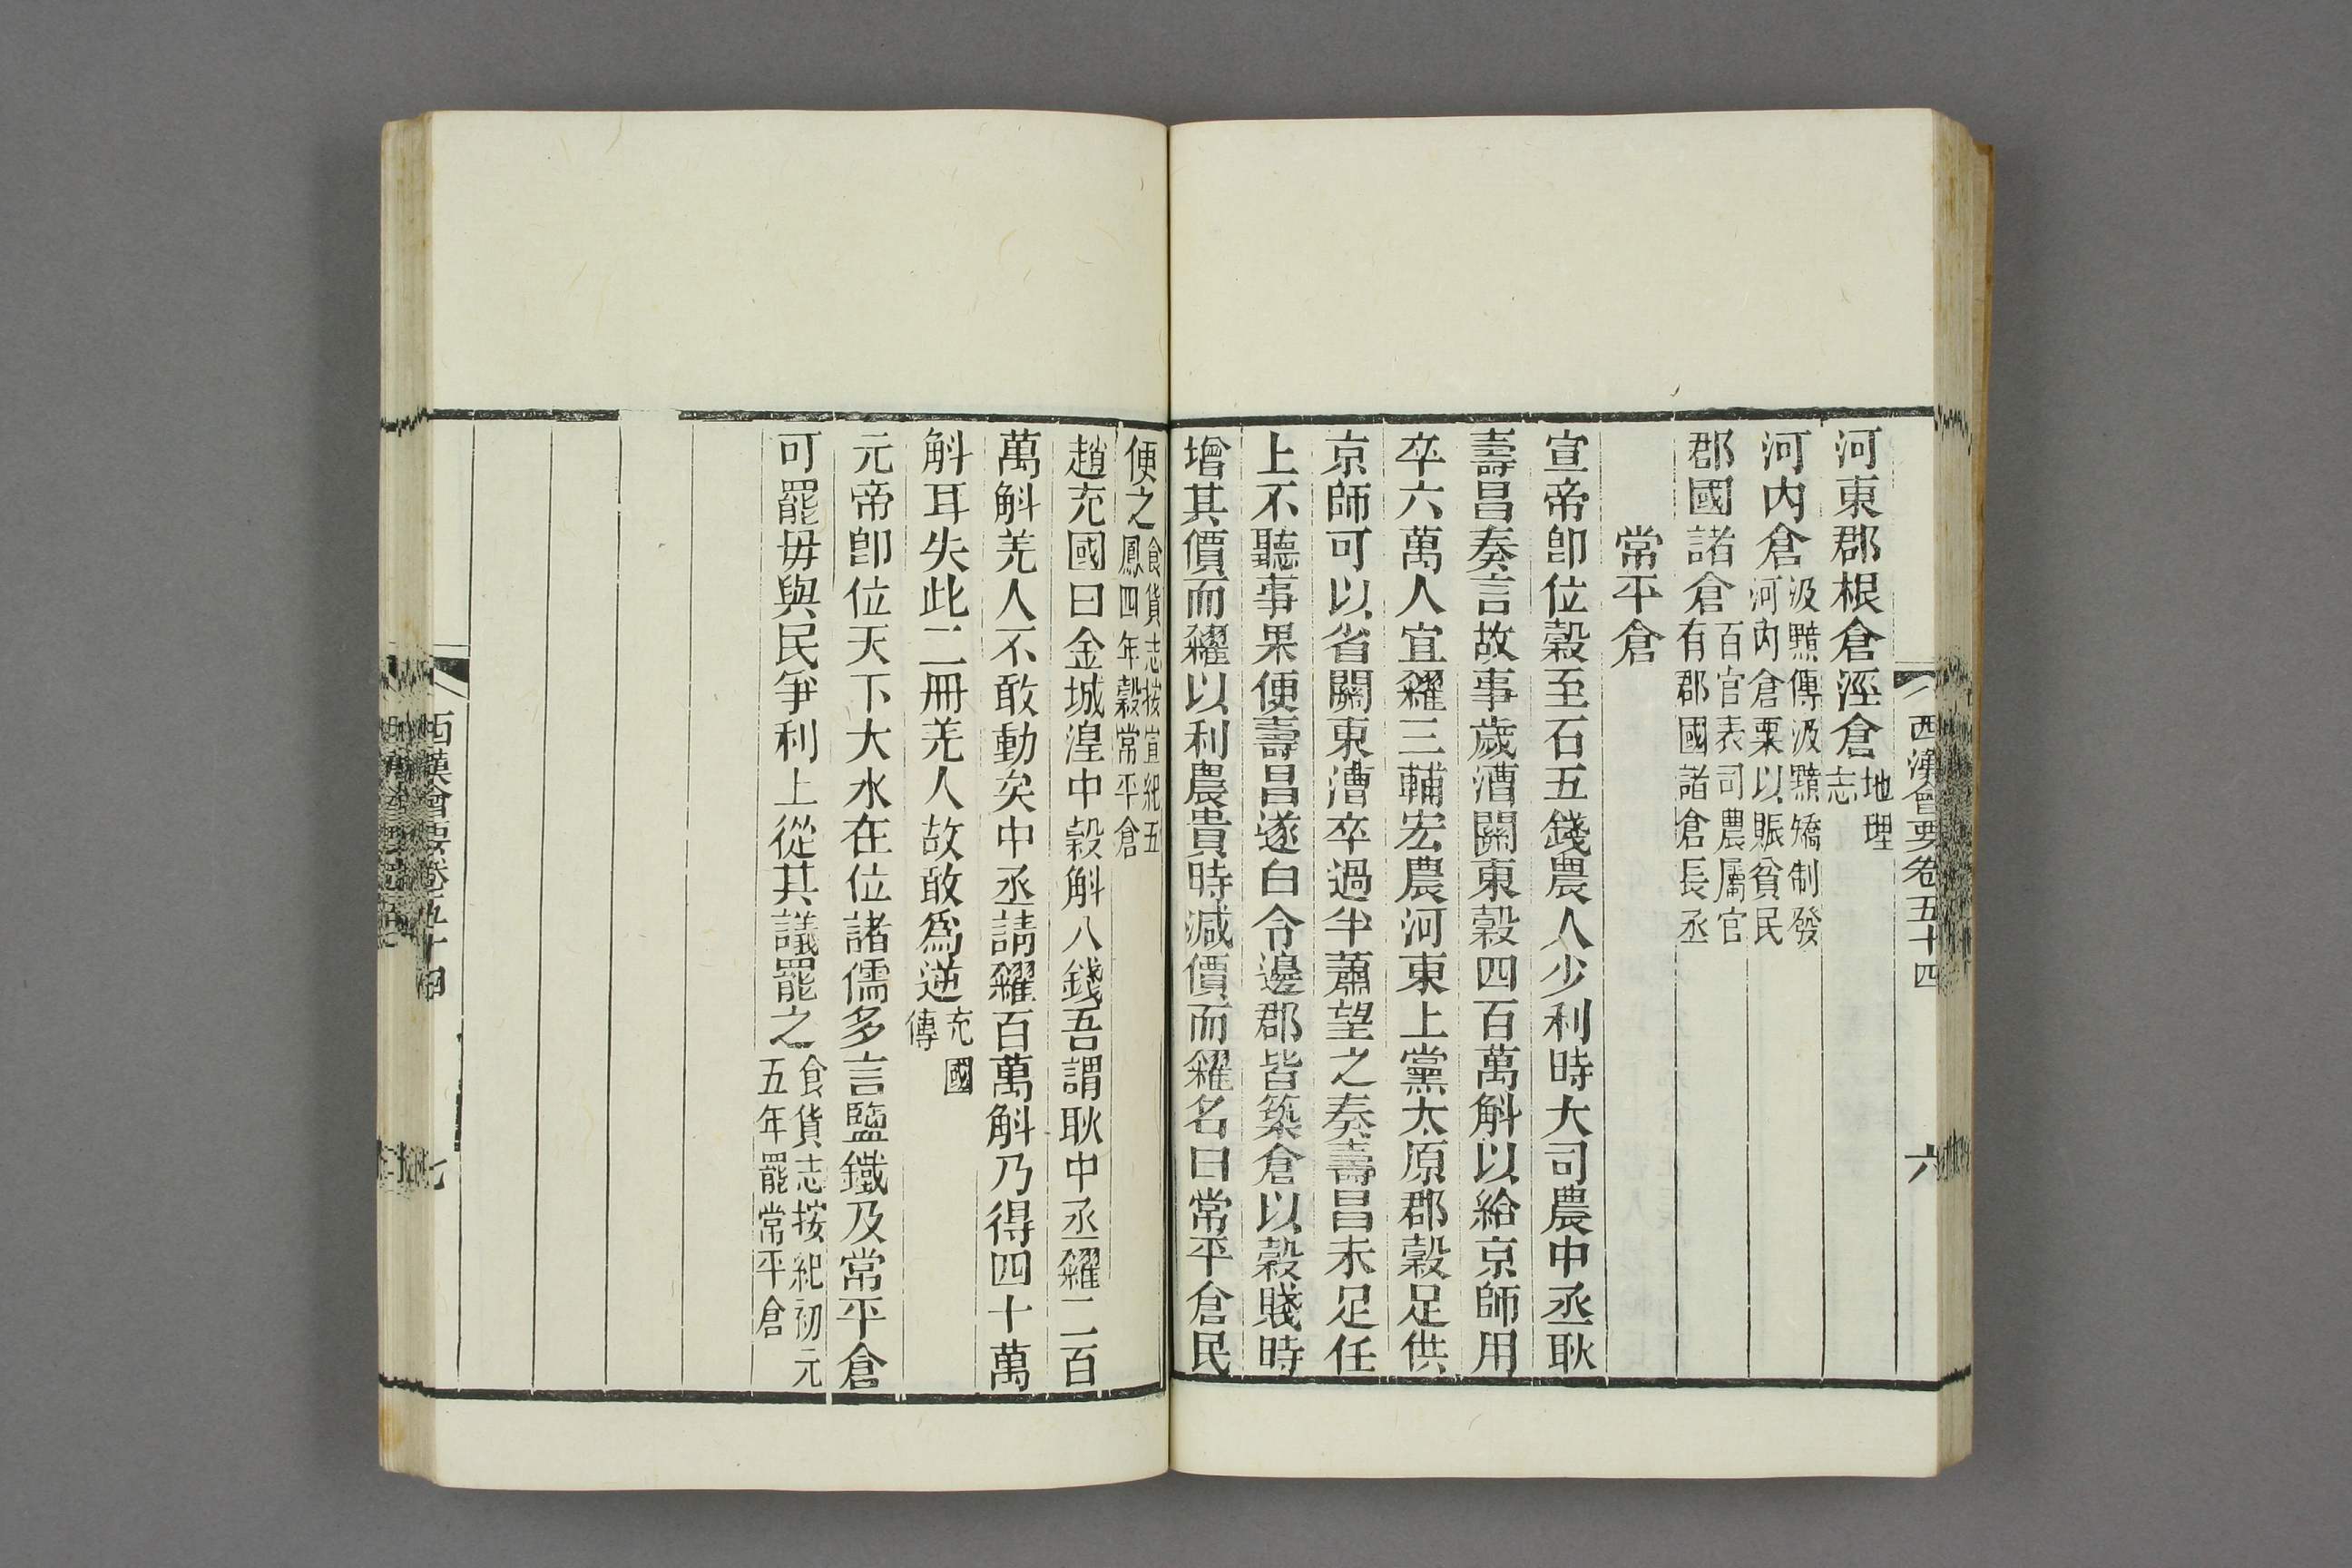 西漢會要卷五十四
六
河東郡根倉溼倉地理志
河内倉汲黯傳汲黯矯制發河内倉粟以賑貧民
郡國諸倉百官表司農屬官有郡國諸倉長丞
常平倉
宣帝卽位穀至石五錢農人少利時大司農中丞耿
壽昌奏言故事歲漕關東穀四百萬斛以給京師用
卒六萬人宜糴三輔宏農河東上黨太原郡穀足供
京師可以省關東漕卒過半蕭望之奏壽昌未足任
上不聽事果便壽昌遂白令邊郡皆築倉以穀賤時
增其價而糴以利農貴時減價而糶名曰常平倉民
便之食貨志按宣紀五鳳四年穀常平倉
趙充國曰金城湟中穀斛八錢吾謂耿中丞糴二百
萬斛羌人不敢動矣中丞請糴百萬斛乃得四十萬
斛耳失此二冊羌人故敢爲逆充國傳
元帝卽位天下大水在位諸儒多言鹽鐵及常平倉
可罷毋與民爭利上從其議罷之食貨志按紀初元五年罷常平倉
西漢會要卷五十四
七